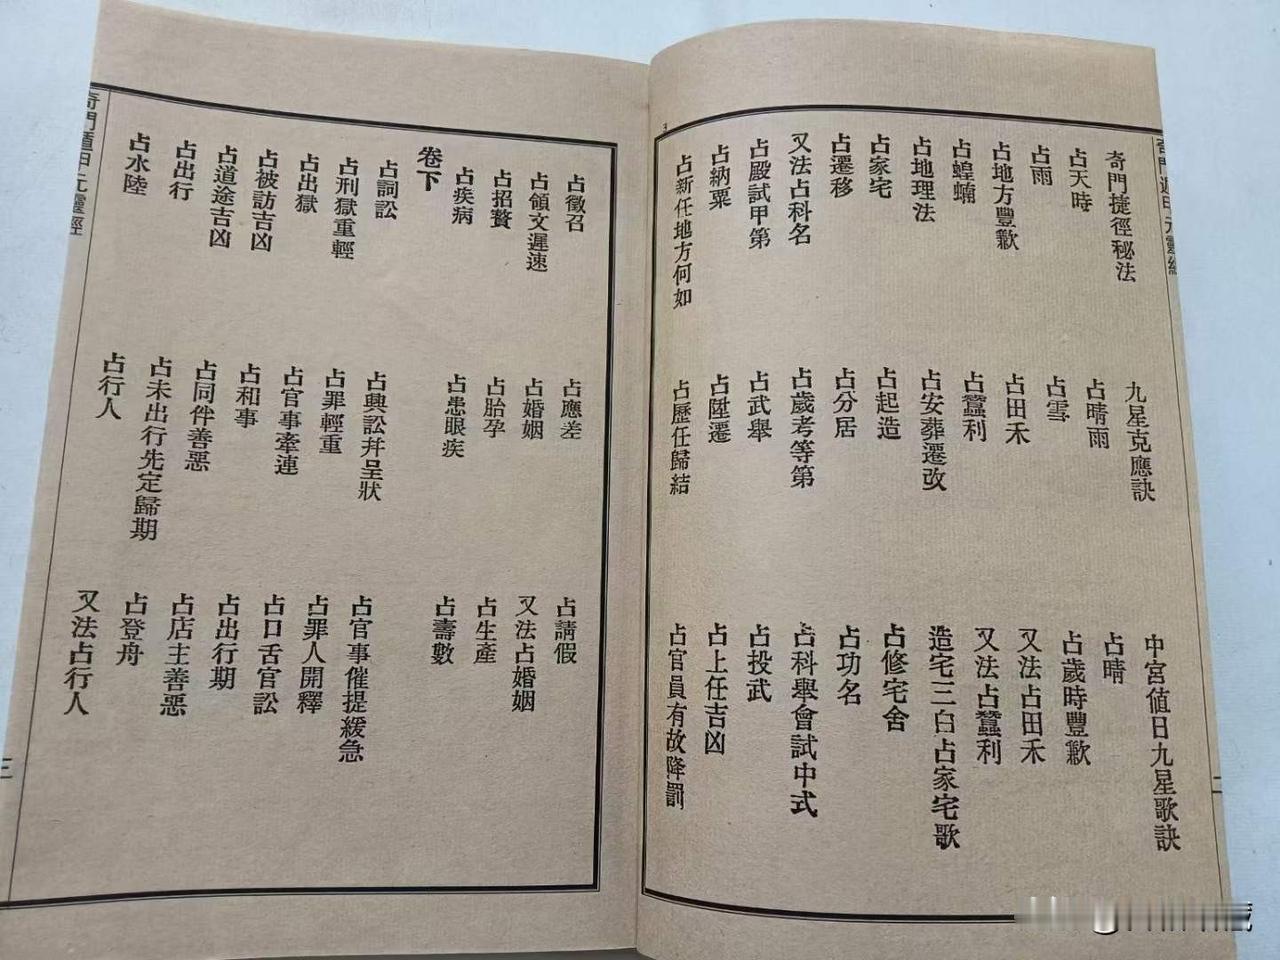 奇門遁甲元靈經
二
奇門捷徑秘法 九星克應訣 中宮值日九星歌訣
占天時 占晴雨 占晴
占雨 占雪 占歲時豐歉
占地方豐歉 占田禾 又法占田禾
占蝗蝻 占蠶利 又法占蠶利
占地理法 占安葬遷改 造宅三白占家宅歌
占家宅 占起造 占修宅舍
占遷移 占分居 占功名
又法占科名 占歲考等第 占科舉會試中式
占殿試甲第 占武舉 占投武
占納粟 占陞遷 占上任吉凶
占新任地方何如 占歷任歸結 占官員有故降罰
占徵召 占應差 占請假
占領文遲速 占婚姻 又法占婚姻
占招贅 占胎孕 占生產
占疾病 占患眼疾 占壽數
卷下
占詞訟 占興訟并呈狀 占官事催提緩急
占刑獄重輕 占罪輕重 占罪人開釋
占出獄 占官事牽連 占口舌官訟
占被訪吉凶 占和事 占出行期
占道途吉凶 占同伴善惡 占店主善惡
占出行 占未出行先定歸期 占登舟
占水陸 占行人 又法占行人
奇門遁甲元靈經
三